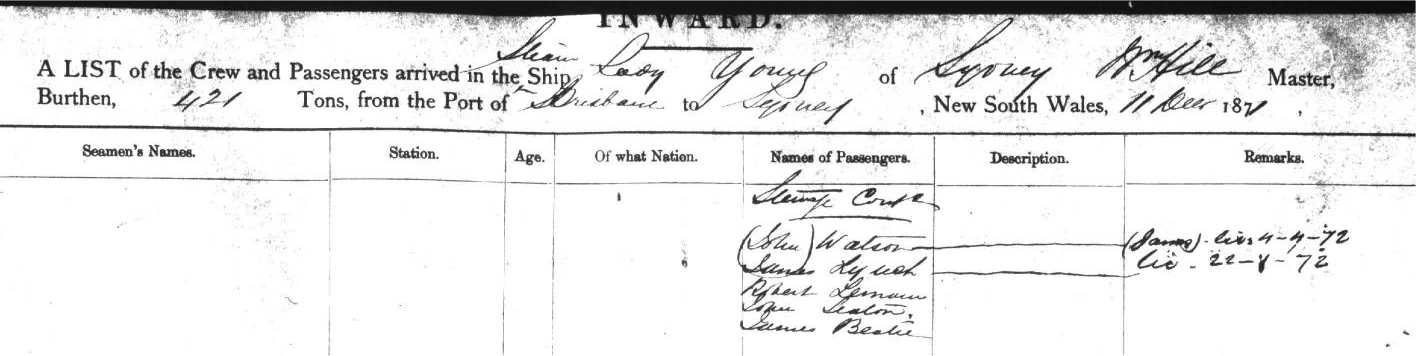 INWARD.
A LIST of the Crew and Passengers arrived in the Steam Ship Lady Young of Sydney Wm Hill Master,
Burthen, 421 Tons, from the Port of Brisbane to Sydney, New South Wales, 11 Decr 1871,
Seamen's Names. Station. Age. Of what Nation. Names of Passengers. Description. Remarks.
Steerage Contd
(John) Watson (James) - lic. 4-4-72
James Lynch lic - 22-8-72
Robert
John Seaton,
James Beatie